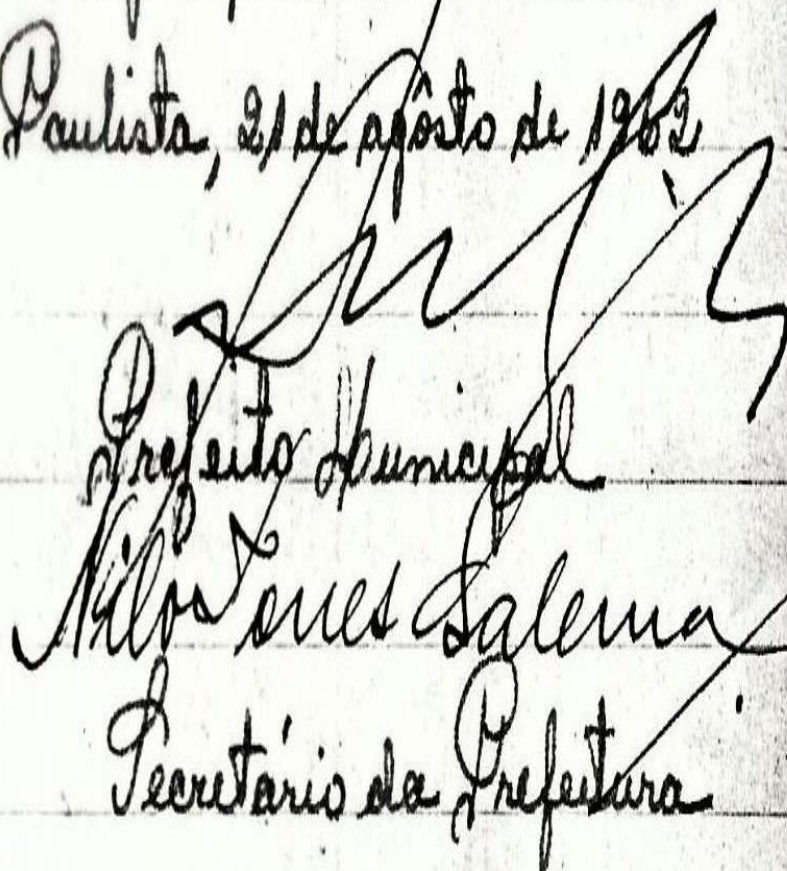 Paulista, 21 de agôsto de 1962
Prefeito Municipal
Nilo Torres Salema
Secretário da Prefeitura